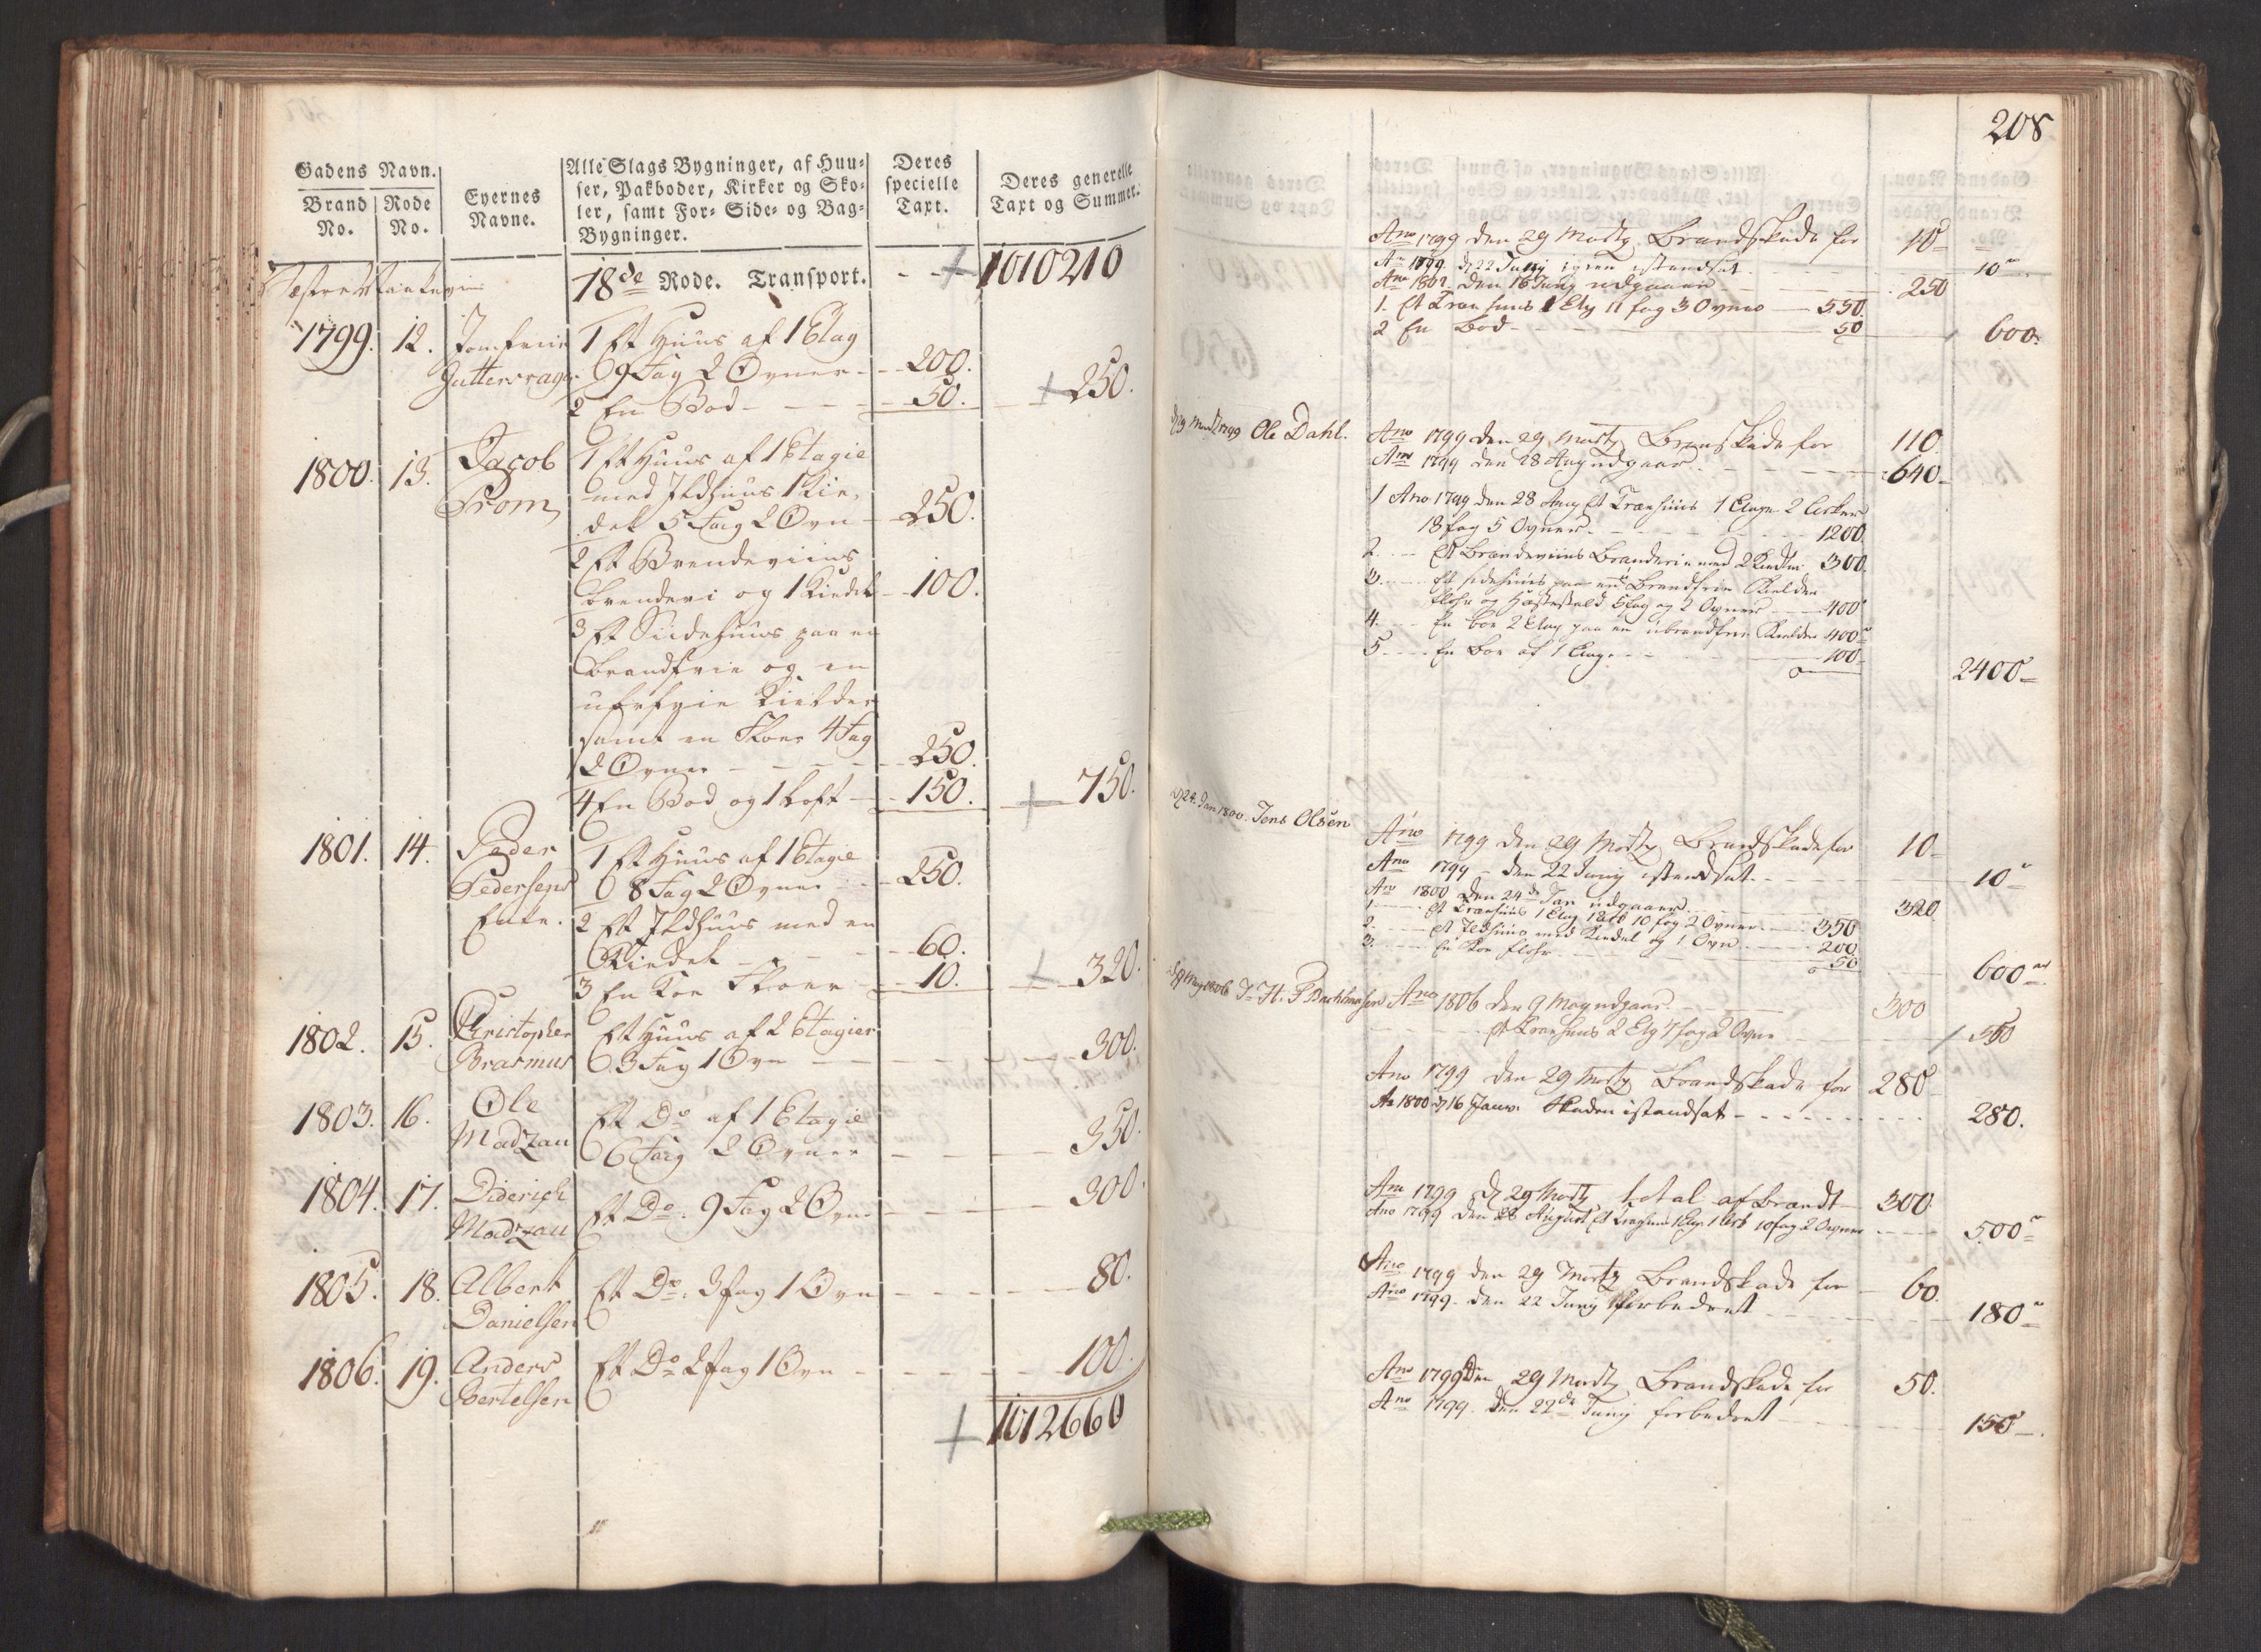 Gadens Navn.
Brand No.
Rode No.
Eyernes Navne.
Alle Slags Bygninger, af Huu-
ser, Pakboder, Kirker og Sko-
ler, samt For- Side- og Bag-
Bygninger.
Deres specielle Taxt.
Deres generelle Taxt og Summer.
18de Rode. Transport. 1010210
1799. 12. Jomfrue 1 Et Huus af 1 Etag
9 Fag 2 Ovner 200.
2 En Bod 50. 250.
1800. 13. Jacob 1 Et Huus af 1 Etagie
Prom med Ildhuus 1 Kie-
del 5 Fag 2 Ovn 250.
2 Et Brendeviins
brenderi og 1 Kiedel 100.
3 Et Siidehuus paa en
brandfrie og en
Kielder
samt en Floer 4 Fag
2 Ovner 250.
4 En Bod og 1 Loft 150. 750.
1801. 14. Peder 1 Et Huus af 1 Etagie
Pedersens 8 Fag 2 Ovner 250.
Enke. 2 Et Ildhuus med en
Kiedel 60.
3 En Koe Floer 10. 320.
1802. 15. Christopher Et Huus af 2 Etagier
Brasmus 3 Fag 1 Ovn 300.
1803. 16. Ole Et Do af 1 Etagie
Madzau 6 Fag 2 Ovner 350.
1804. 17. Diderich Et Do. 9 Fag 2 Ovn 300.
Madzau
1805. 18. Albert Et Do. 3 Fag 1 Ovn 80.
Danielsen
1806. 19. Anders Et Do 2 Fag 1 Ovn 100.
Bertelsen
1012660
208
Ano 1799 den 29 Martz Brandskade for 10
Ao 1799 d 22 Junij igien istandsat 10
Ano 1802. den 16 Junij udgaaer 250
1. Et Træe huus 1 Etg 11 fag 3 Ovner 550.
2 En Bod 50 600.
1799 Ole Dahl. Ano 1799 den 29 Martz Brandskade for 110.
Ano 1799 den 28 Aug udgaar 640
1 Ano 1799 den 28 Aug Et Træehuus 1 Etage 2 Arker
18 fag 5 Ovner 1200.
2. Et Brændeviins Brænderie med 2 Kiedler 300.
3. Et sidehuus paa en Brandfrie Kielder
flohr og Hæstestald 5 fag og 2 Ovner 400
4. En boe 2 Etag paa en ubrandfrie Kielder 400
5 En Boe af 1 Etage 100
2400
d 24. Jan 1800. Jens Olsen Ano 1799 den 29 Martz Brandskade for 10
Ano 1799 den 22 Junij istandsat 10
Ano 1800 den 24de Jan udgaaer 320
1. Et Træehuus 1 Etag 1 Ark 10 fag 2 Ovner 350
2. Et Ildhuus med Kiedel og 1 Ovn 200.
3. En Koe flohr 50
600
d 9 May 1806 J. H. F. Ano 1806 den 9 May udgaar 300
Et Træehuus 2 Etg 7 fag 2 Ovne
Ano 1799 den 29 Martz Brandskade for 280
Ao 1800 d 16 Janv. Skaden istandsat 280.
Ano 1799 d 29 Martz total afBrændt 300.
Ano 1799 den 28 August Et Træehuus 1 Etge 1 Ark 10 fag 2 Ovner 500
Ano 1799 den 29 Martz Brandskade for 60.
Ano 1799. den 22 Junij forbedret 180
Ano 1799 Den 29 Martz Brandskade for 50.
Ano 1799. den 22de Junij forbedret 150